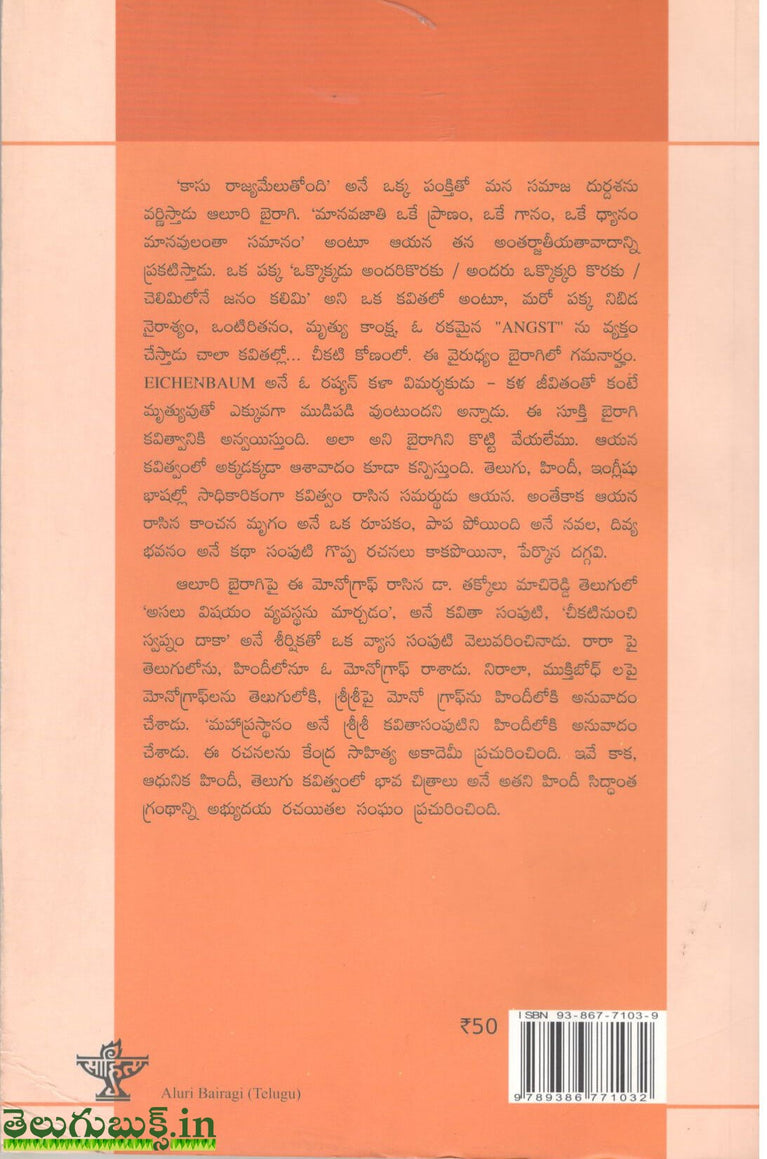 'కాసు రాజ్యమేలుతోంది' అనే ఒక్క పంక్తితో మన సమాజ దుర్దశను
వర్ణిస్తాడు ఆలూరి బైరాగి. 'మానవజాతి ఒకే ప్రాణం, ఒకే గానం, ఒకే ధ్యానం
మానవులంతా సమానం' అంటూ ఆయన తన అంతర్జాతీయతావాదాన్ని
ప్రకటిస్తాడు. ఒక పక్క 'ఒక్కొక్కడు అందరికొరకు / అందరు ఒక్కొక్కరి కొరకు /
చెలిమిలోనే జనం కలిమి' అని ఒక కవితలో అంటూ, మరో పక్క నిబిడ
నైరాశ్యం, ఒంటిరితనం, మృత్యు కాంక్ష, ఓ రకమైన "ANGST" ను వ్యక్తం
చేస్తాడు చాలా కవితల్లో... చీకటి కోణంలో. ఈ వైరుధ్యం బైరాగిలో గమనార్హం.
EICHENBAUM అనే ఓ రష్యన్ కళా విమర్శకుడు – కళ జీవితంతో కంటే
మృత్యువుతో ఎక్కువగా ముడిపడి వుంటుందని అన్నాడు. ఈ సూక్తి బైరాగి
కవిత్వానికి అన్వయిస్తుంది. అలా అని బైరాగిని కొట్టి వేయలేము. ఆయన
కవిత్వంలో అక్కడక్కడా ఆశావాదం కూడా కన్పిస్తుంది. తెలుగు, హిందీ, ఇంగ్లీషు
భాషల్లో సాధికారికంగా కవిత్వం రాసిన సమర్థుడు ఆయన. అంతేకాక ఆయన
రాసిన కాంచన మృగం అనే ఒక రూపకం, పాప పోయింది అనే నవల, దివ్య
భవనం అనే కథా సంపుటి గొప్ప రచనలు కాకపొయినా, పేర్కొన దగ్గవి.
ఆలూరి బైరాగిపై ఈ మోనోగ్రాఫ్ రాసిన డా. తక్కోలు మాచిరెడ్డి తెలుగులో
'అసలు విషయం వ్యవస్థను మార్చడం', అనే కవితా సంపుటి, 'చీకటినుంచి
స్వప్నం దాకా' అనే శీర్షికతో ఒక వ్యాస సంపుటి వెలువరించినాడు. రారా పై
తెలుగులోను, హిందీలోనూ ఓ మోనోగ్రాఫ్ రాశాడు. నిరాలా, ముక్తిబోధ్ లపై
మోనోగ్రాఫ్‌లను తెలుగులోకి, శ్రీశ్రీపై మోనో గ్రాఫ్‌ను హిందీలోకి అనువాదం
చేశాడు. 'మహాప్రస్థానం అనే శ్రీశ్రీ కవితాసంపుటిని హిందీలోకి అనువాదం
చేశాడు. ఈ రచనలను కేంద్ర సాహిత్య అకాదెమీ ప్రచురించింది. ఇవే కాక,
ఆధునిక హిందీ, తెలుగు కవిత్వంలో భావ చిత్రాలు అనే అతని హిందీ సిద్ధాంత
గ్రంథాన్ని అభ్యుదయ రచయితల సంఘం ప్రచురించింది.
₹50
ISBN 93-867-7103-9
9 789386 771032
साहित्य
Aluri Bairagi (Telugu)
తెలుగుబుక్స్.in